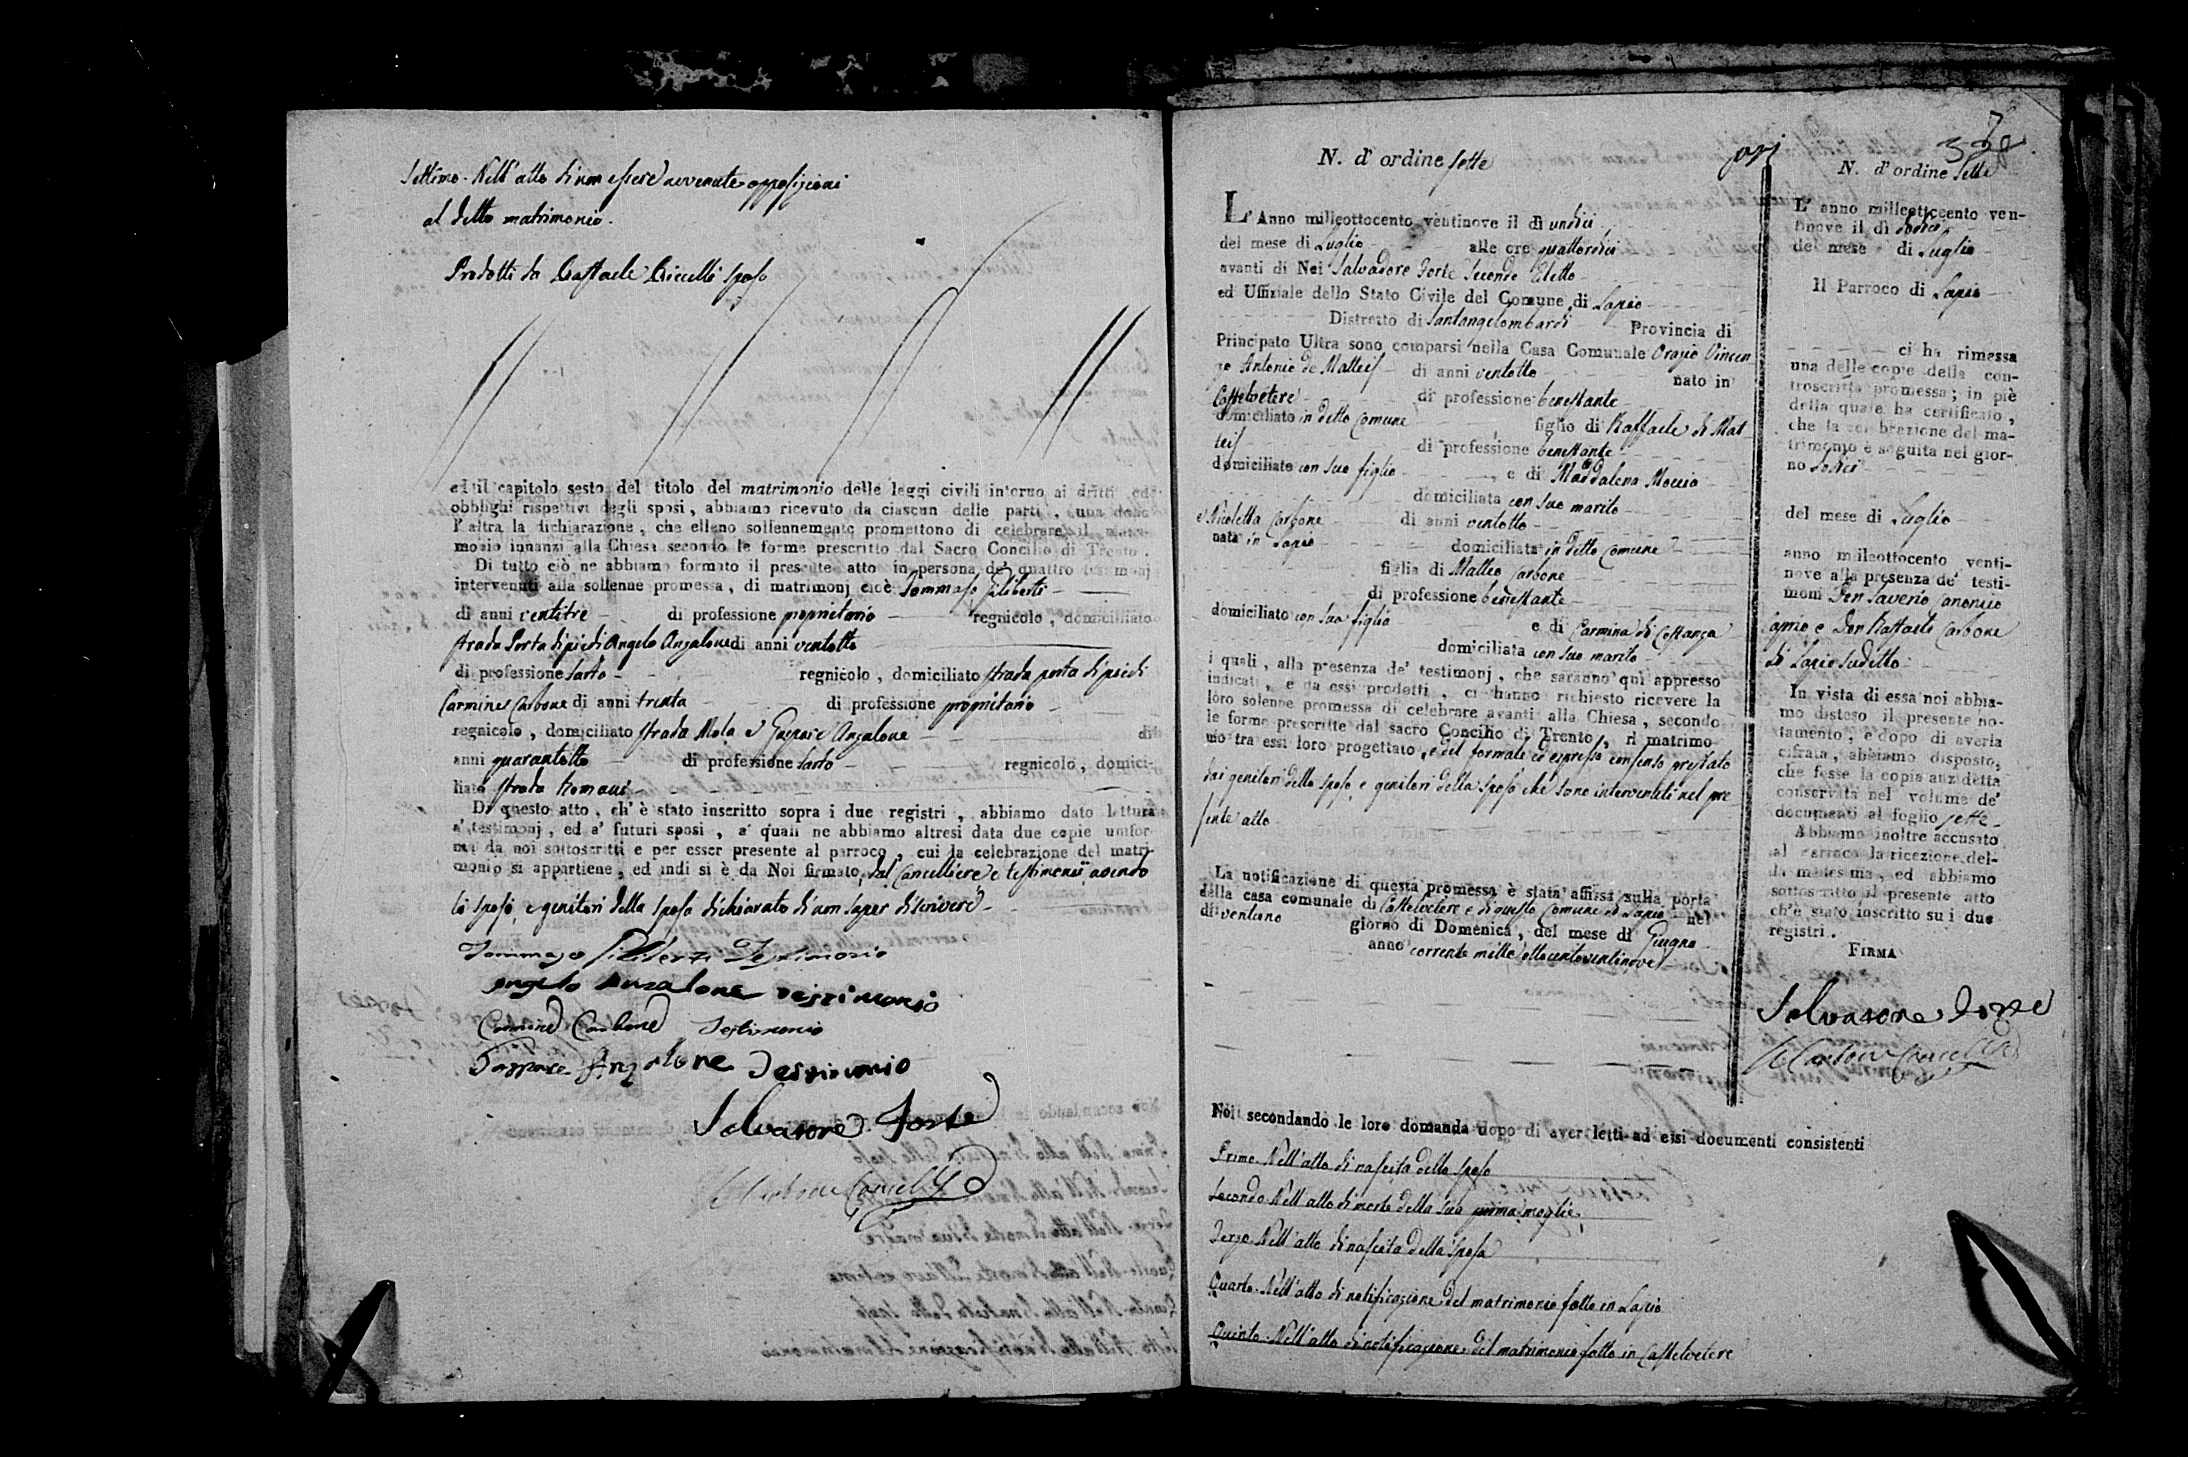 Settimo. Nell'atto di non essere avvenute opposizioni
al detto matrimonio.
Prodotti da Raffaele Ciccelli sposo
ed il capitolo sesto del titolo del matrimonio delle leggi civili intorno ai dritti ed
obblighi rispettivi degli sposi, abbiamo ricevuto da ciascun delle parti, una dopo
l'altra la dichiarazione, che elleno sollennemente promettono di celebrare il matri-
monio innanzi alla Chiesa secondo le forme prescritto dal Sacro Concilio di Trento.
Di tutto ciò ne abbiamo formato il presente atto in persona de' quattro testimonj
intervenuti alla sollenne promessa, di matrimonj cioè Tommaso Filiberti
di anni ventitre di professione proprietario regnicolo, domiciliato
strada Porta di piedi Angelo Anzalone di anni ventotto
di professione sarto regnicolo, domiciliato strada porta di piedi
Carmine Carbone di anni trenta di professione proprietario
regnicolo, domiciliato strada Mola e Gaspare Anzalone di
anni quarantotto di professione sarto regnicolo, domici-
liato strada Romani
Di questo atto, ch'è stato inscritto sopra i due registri, abbiamo dato lettura
a' testimonj, ed a' futuri sposi, a' quali ne abbiamo altresì data due copie unifor-
mi da noi sottoscritti e per esser presente al parroco, cui la celebrazione del matri-
monio si appartiene, ed indi si è da Noi firmato, dal Cancelliere e testimonii avendo
li sposi, e genitori della sposa dichiarato di non saper di scrivere
Tommaso Filiberti Testimonio
Angelo Anzalone Testimonio
Carmine Carbone Testimonio
Gaspare Anzalone Testimonio
Salvatore Forte
Carbone Canc.
N. d'ordine sette
L'Anno milleottocento ventinove il dì undici
del mese di Luglio alle ore quattordici
avanti di Noi Salvadore Forte Secondo Eletto
ed Uffiziale dello Stato Civile del Comune di Lapio
Distretto di Santangelombardi Provincia di
Principato Ultra sono comparsi nella Casa Comunale Orazio Vincen-
zo Antonio de Matteis di anni ventotto nato in
Castelvetere di professione benestante
domiciliato in detto Comune figlio di Raffaele di Mat-
teis di professione benestante
domiciliato con suo figlio, e di Maddalena Moccia
domiciliata con suo marito
e Nicoletta Carbone di anni ventotto
nata in Lapio domiciliata in detto Comune
figlia di Matteo Carbone
di professione benestante
domiciliato con sua figlia e di Carmina di Costanza
domiciliata con suo marito
i quali, alla presenza de' testimonj, che saranno qui appresso
indicati, e da essi prodotti, ci hanno richiesto ricevere la
loro solenne promessa di celebrare avanti alla Chiesa, secondo
le forme prescritte dal sacro Concilio di Trento, il matrimo-
nio tra essi loro progettato, e del formale ed espresso consenso prestato
dai genitori dello sposo, e genitori della sposa che sono intervenuti nel pre-
sente atto
La notificazione di questa promessa è stata affissa sulla porta
della casa comunale di Castelvetere e di questo Comune di Lapio nel
dì ventuno giorno di Domenica, del mese di Giugno
anno corrente mille ottocentoventinove
Noi secondando le loro domanda dopo di aver letti ad essi documenti consistenti
Primo. Nell'atto di nascita dello sposo
Secondo. Nell'atto di morte della sua prima moglie
Terzo. Nell'atto di nascita della sposa
Quarto. Nell'atto di notificazione del matrimonio fatto in Lapio
Quinto. Nell'atto di notificazione del matrimonio fatto in Castelvetere
N. d'ordine sette
L'anno milleottocento ven-
tinove il dì dodici
del mese di Luglio
Il Parroco di Lapio
ci ha rimessa
una delle copie della con-
troscritta promessa; in piè
della quale ha certificato,
che la celebrazione del ma-
trimonio è seguita nel gior-
no dodici
del mese di Luglio
anno milleottocento venti-
nove alla presenza de' testi-
moni Don Saverio Canonico
Caprio e Don Raffaele Carbone
di Lapio sudetto
In vista di essa noi abbia-
mo disteso il presente no-
tamento, e dopo di averla
cifrata, abbiamo disposto,
che fosse la copia anzidetta
conservata nel volume de'
documenti al foglio sette
Abbiamo inoltre accusato
al Parroco la ricezione del-
la medesima, ed abbiamo
sottoscritto il presente atto
ch'è stato inscritto su i due
registri.
FIRMA
Salvatore Forte
Carbone Canc.